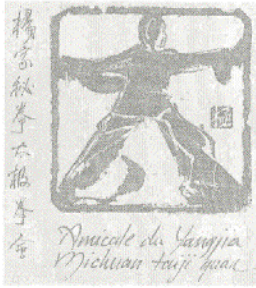 楊家秘拳太極拳會
Amicale du Yangjia
Michuan taiji quan